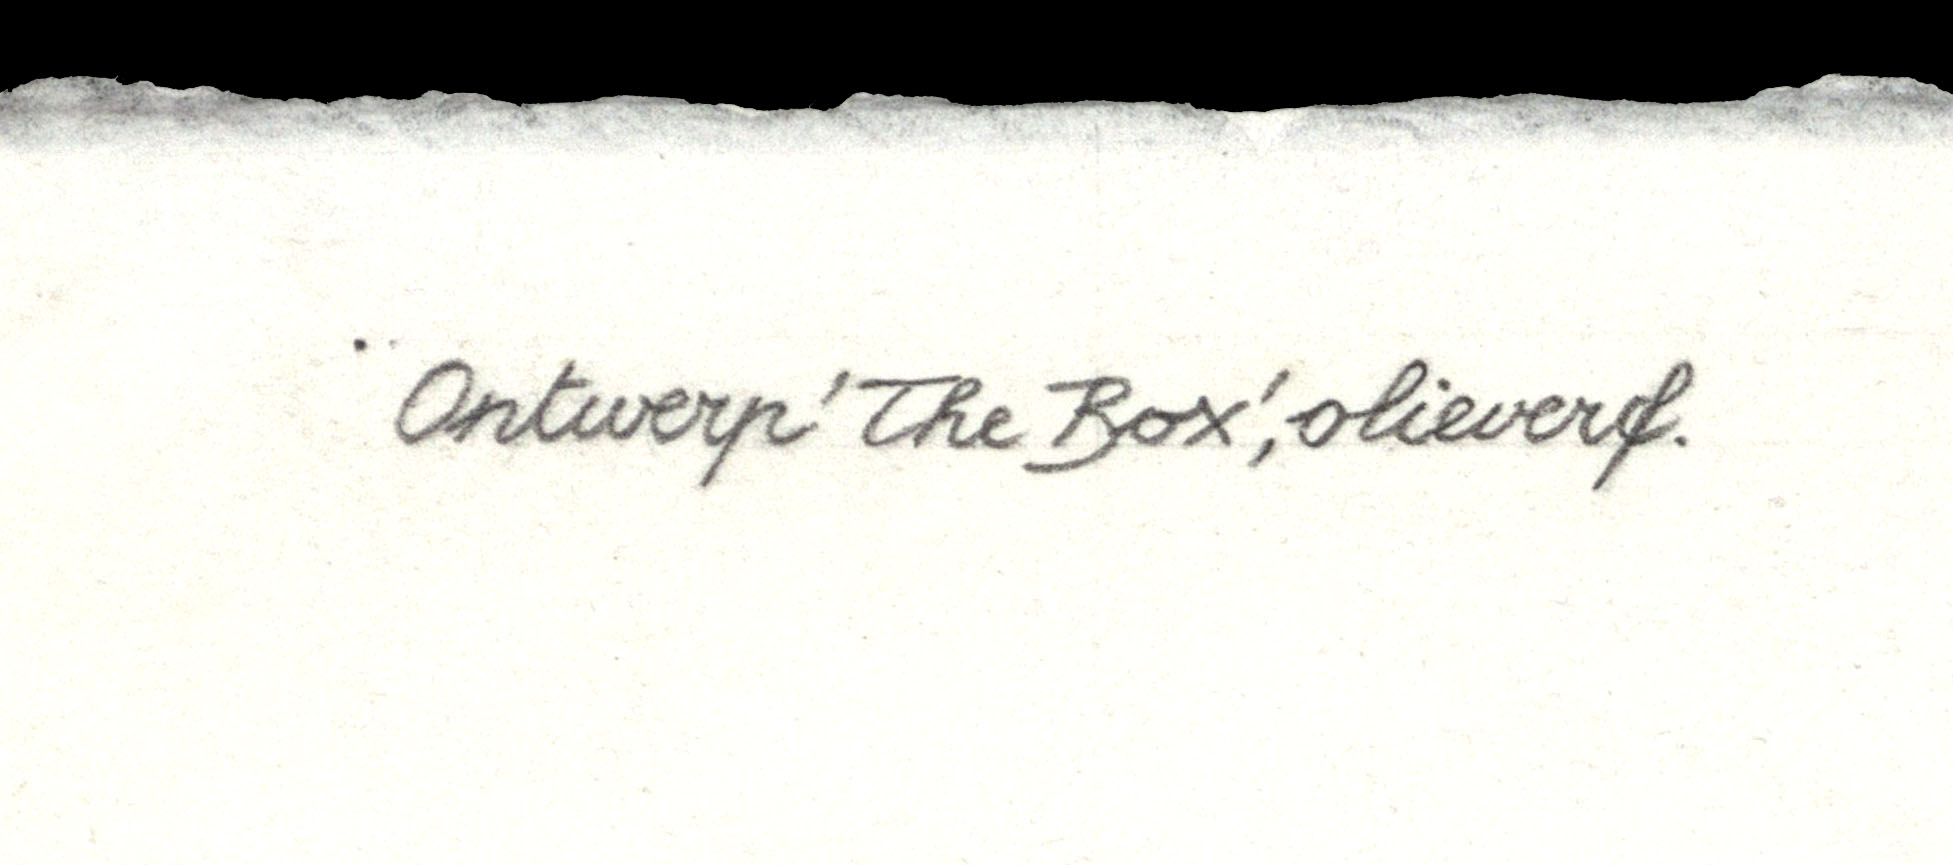 Ontwerp 'The Box', olieverf.